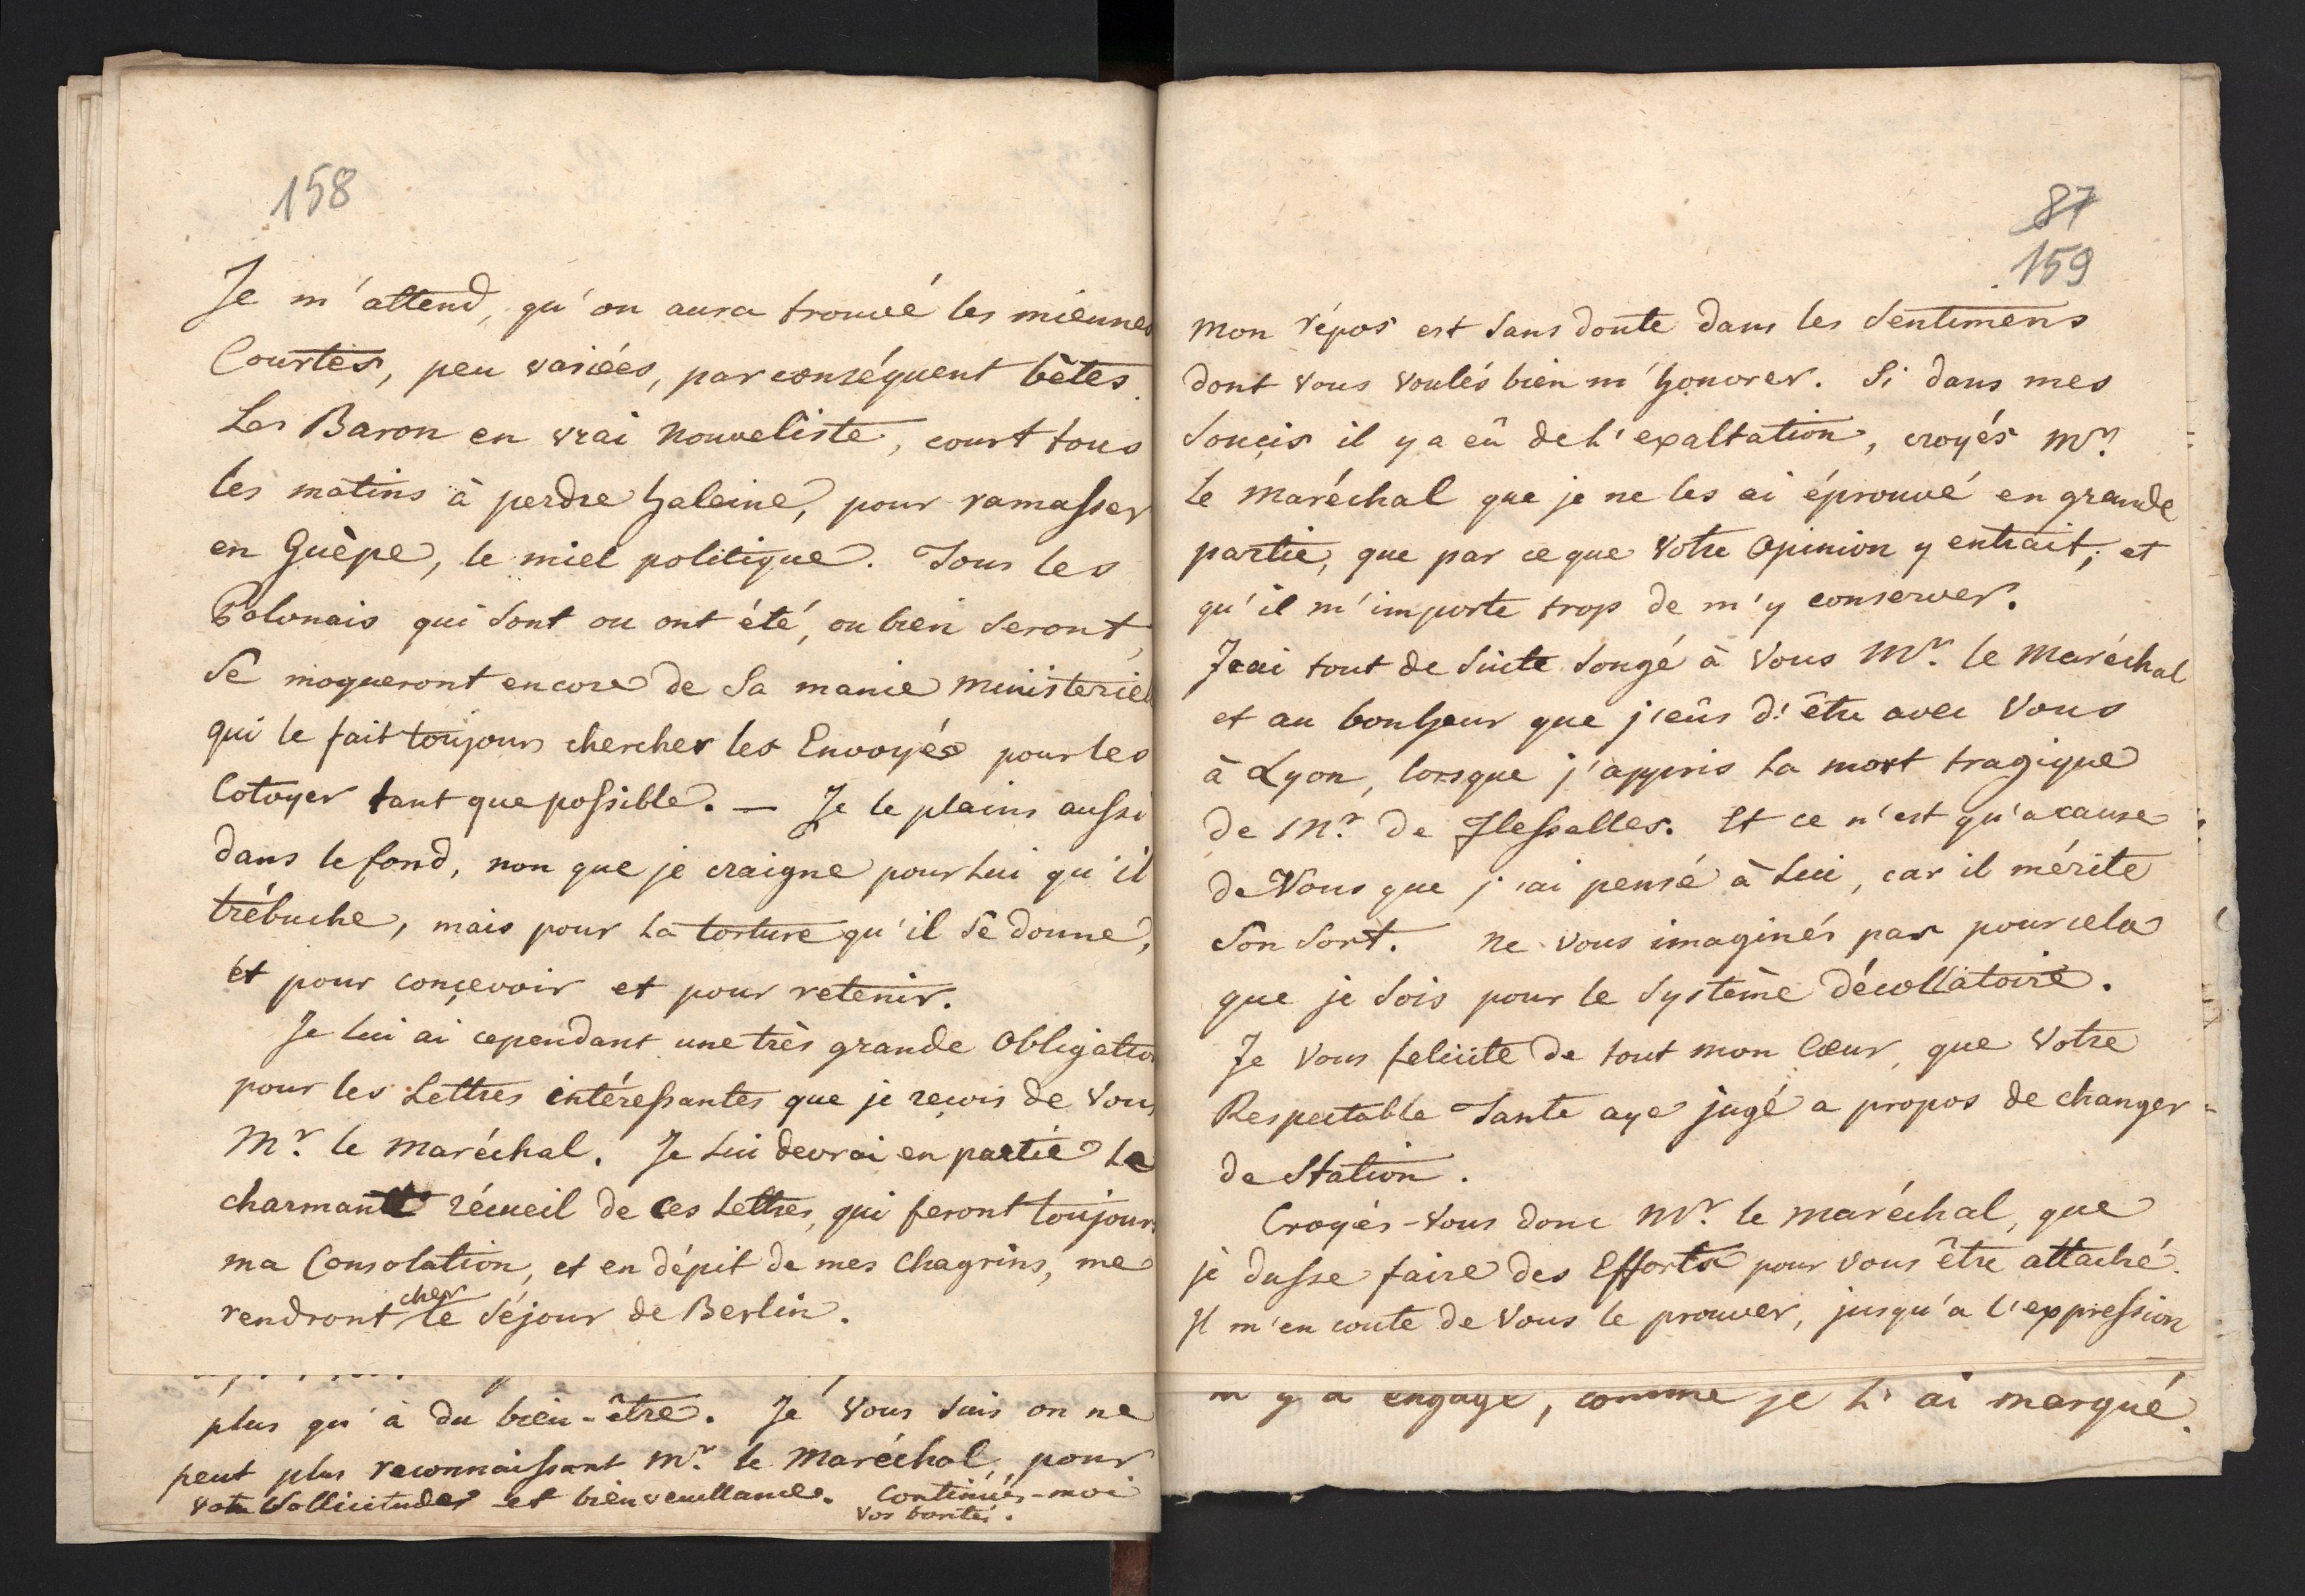 158
Je m'attend, qu'on aura trouvé les miennes
Courtes, peu variées, par conséquent bètes.
Les Baron en vrai Nouveliste, court tous
les matins à perdre haleine, pour ramasser
en Guèpe, le miel politique. Tous les
Polonais qui sont ou ont été, ou bien seront,
se moqueront encore de sa manie ministeriel
qui le fait toujours chercher les Envoyés pour les
Cotoyer tant que possible. — Je le plains aussi
dans le fond, non que je craigne pour Lui qu'il
trébuche, mais pour la torture qu'il se donne,
et pour conçevoir et pour retenir.
Je lui ai cependant une très grande Obligation
pour les Lettres intéressantes que je reçois de vous
Mr. le Maréchal. Je Lui devrai en partie le
charmant récueil de ces Lettres, qui feront toujours
ma Consolation, et en dépit de mes Chagrins, me
rendront cher le séjour de Berlin.
plus qu'à du bien-être. Je vous suis on ne
peut plus reconnaissant Mr. le Maréchal, pour
votre Sollicitudes et bienveuillance. Continués-moi
vos bontés.
87
159
mon répos est sans doute dans les Sentimens
dont vous voulés bien m'honorer. Si dans mes
Souçis il y a eû de l'exaltation, croyés Mr.
le Maréchal que je ne les ai éprouvé en grande
partie, que par ce que votre Opinion y entrait; et
qu'il m'importe trop de m'y conserver.
J'ai tout de suite songé à vous Mr. le Maréchal
et au bonheur que j'eûs d'être avec vous
à Lyon, lorsque j'appris la mort tragique
de Mr. de Flesselles. Et ce n'est qu'a cause
de Vous que j'ai pensé à Lui, car il mérite
son sort. Ne vous imaginés pas pour cela
que je sois pour le Système décollatoire.
Je vous felicite de tout mon Cœur, que votre
Respectable Tante aye jugé a propos de changer
de Station.
Croyés-vous donc Mr. le Maréchal, que
je dusse faire des Efforts pour vous être attaché.
Il m'en coute de vous le prouver, jusqu'a l'expression
m'y a engagé, comme je l'ai marqué.